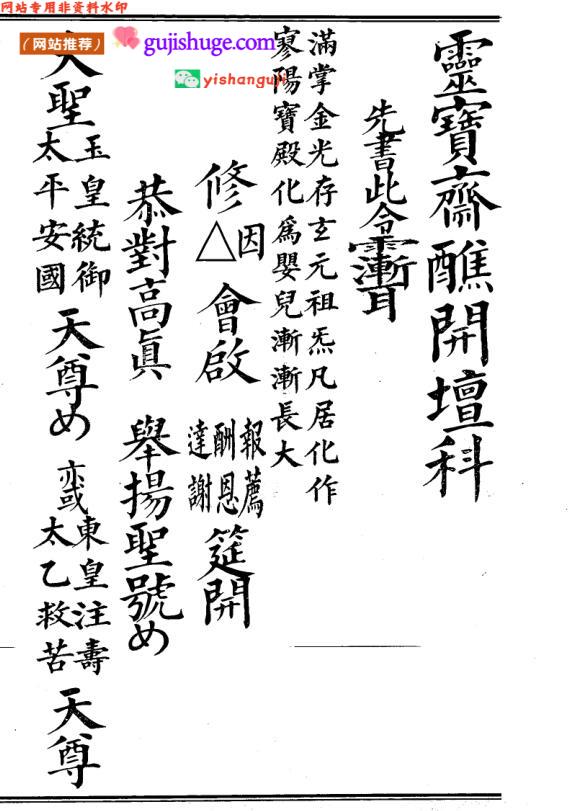 网站专用非资料水印
（网站推荐）
gujishuge.com
yishanguji
靈寶齋醮開壇科
先書此令
滿掌金光存玄元祖炁凡居化作
寥陽寶殿化為嬰兒漸漸長大
修因△會啟
報薦
酬恩
達謝
筵開
恭對高眞　舉揚聖號め
大聖
玉皇統御
太平安國
天尊め
亦或
東皇注壽
太乙救苦
天尊